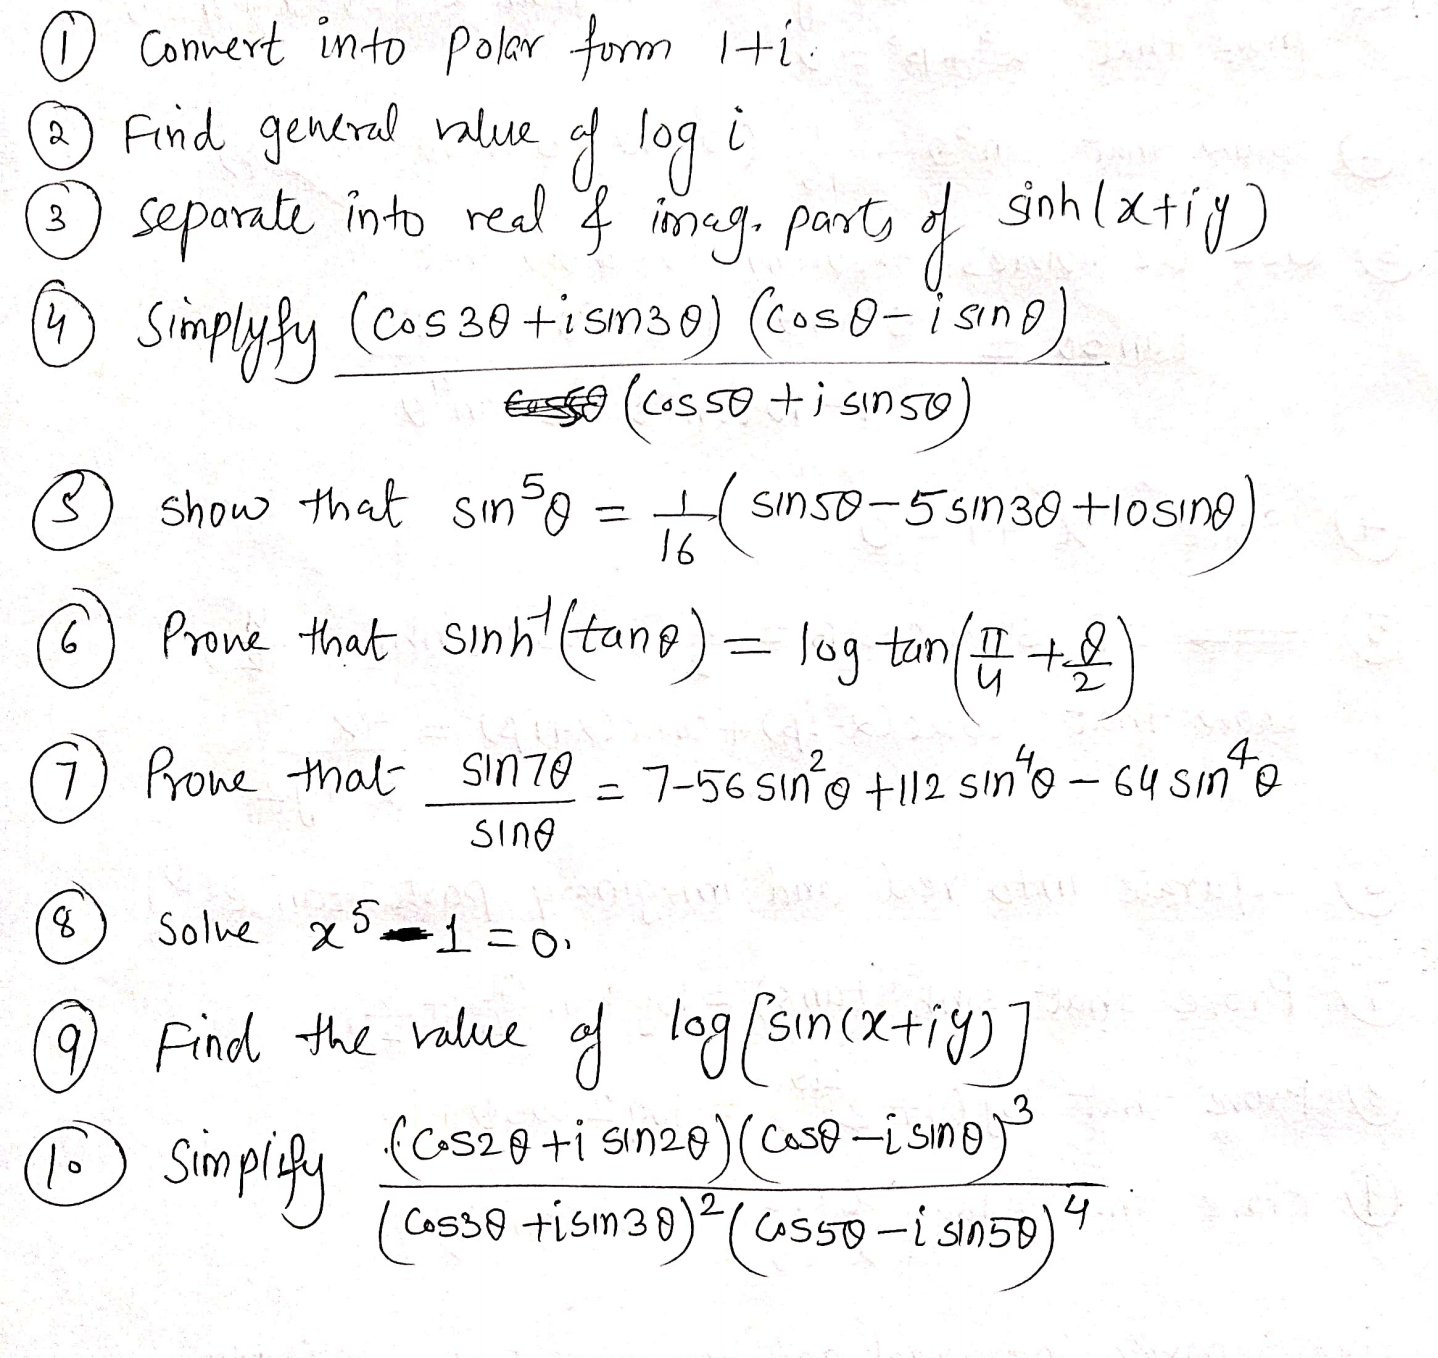 ① Convert into Polar form 1+i.
② Find general value of log i
③ separate into real & imag. parts of sinh(x+iy)
④ Simplyfy (cos3θ+isin3θ)(cosθ-isinθ)
(cos5θ+isin5θ)
⑤ show that sin⁵θ = 1/16 (sin5θ-5sin3θ+10sinθ)
⑥ Prove that sinh⁻¹(tanθ) = log tan(π/4+θ/2)
⑦ Prove that sin7θ/sinθ = 7-56sin²θ+112sin⁴θ-64sin⁴θ
⑧ Solve x⁵-1=0.
⑨ Find the value of log[sin(x+iy)]
⑩ Simplify (cos2θ+isin2θ)(cosθ-isinθ)³
(cos3θ+isin3θ)²(cos5θ-isin5θ)⁴